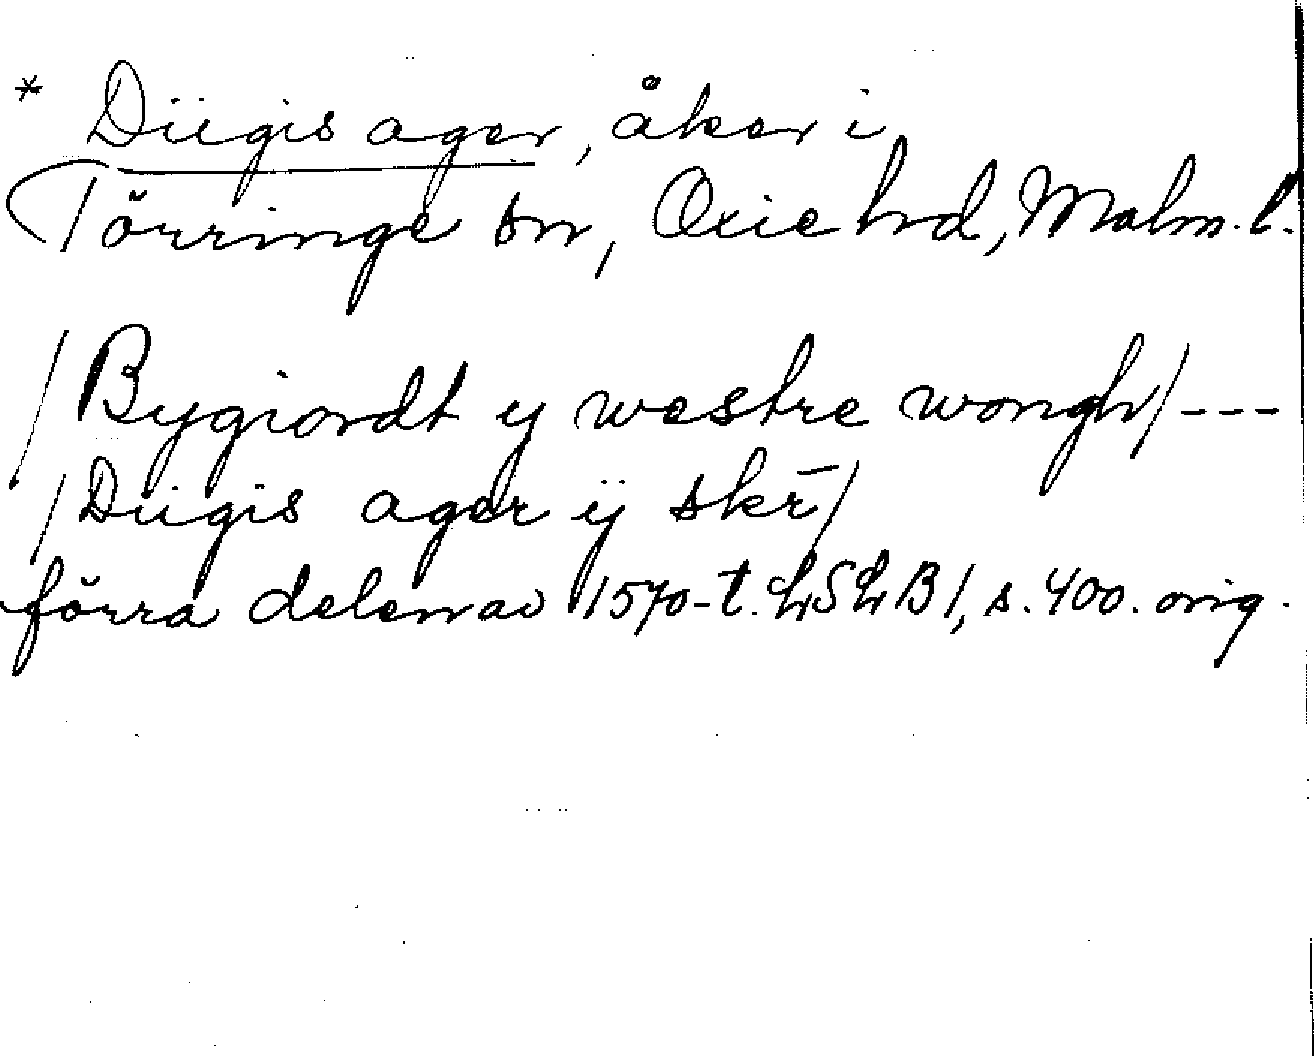 * Diigis ager, åker i
Törringe sn, Oxie hd, Malm. l.
/Bygiordt y westre wongh/ ---
/Diigis ager ij skr̄/
förra delen av 1570-t. LSLB 1, s. 400. orig.